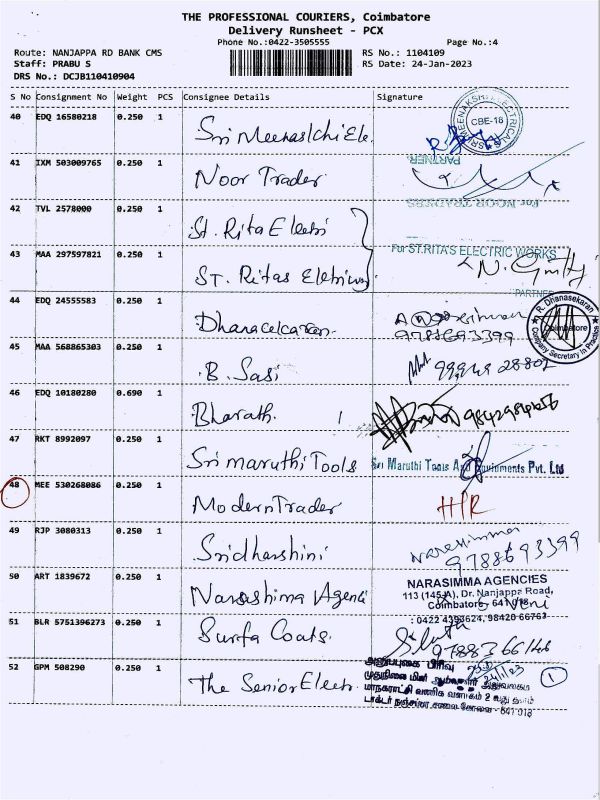 THE PROFESSIONAL COURIERS, Coimbatore
Delivery Runsheet - PCX
Phone No.:0422-3505555 Page No.:4
Route: NANJAPPA RD BANK CMS RS No.: 1104109
Staff: PRABU S RS Date: 24-Jan-2023
DRS No.: DCJB110410904
S No Consignment No Weight PCS Consignee Details Signature
40 EDQ 16580218 0.250 1 Sri Meenaskhi Ele.
SRI MEENAKSHI ELECTRICALS CBE-18
PARTNER
41 IXM 503009765 0.250 1 Noor Trader
For NOOR TRADERS
42 TVL 2578000 0.250 1 St. Rita Electri
43 MAA 297597821 0.250 1 ST. Ritas Eletriwory
For ST.RITA'S ELECTRIC WORKS
PARTNER
44 EDQ 24555583 0.250 1 Dhanacelcaran.
9788693399
R. Dhanasekaran Coimbatore Company Secretary in Practice
45 MAA 568865303 0.250 1 B. Sasi
46 EDQ 10180280 0.690 1 Bharath. 1
47 RKT 8992097 0.250 1 Sri maruthi Tools
Sri Maruthi Tools And Equipments Pvt. Ltd
48 MEE 530268086 0.250 1 Modern Trader
49 RJP 3080313 0.250 1 Sridharshini
9788693399
50 ART 1839672 0.250 1 Narashima Agenci
NARASIMMA AGENCIES
113 (145-A), Dr. Nanjappa Road,
Coimbatore - 641 018
: 0422 4393624, 98420 66763
51 BLR 5751396273 0.250 1 Surfa Coats.
97883 66146
52 GPM 508290 0.250 1 The Senior Electr
அனுப்புகை பிரிவு
24/1/23
1